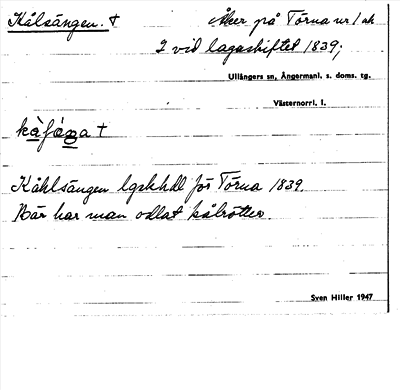 Kålsängen. † Åker på Törna nr 1 och
2 vid lagaskiftet 1839;
Ullångers sn, Ångermanl. s. doms. tg.
Västernorrl. l.
Kåhlsängen lgskhdl för Törna 1839.
Här har man odlat kålrötter.
Sven Hiller 1947